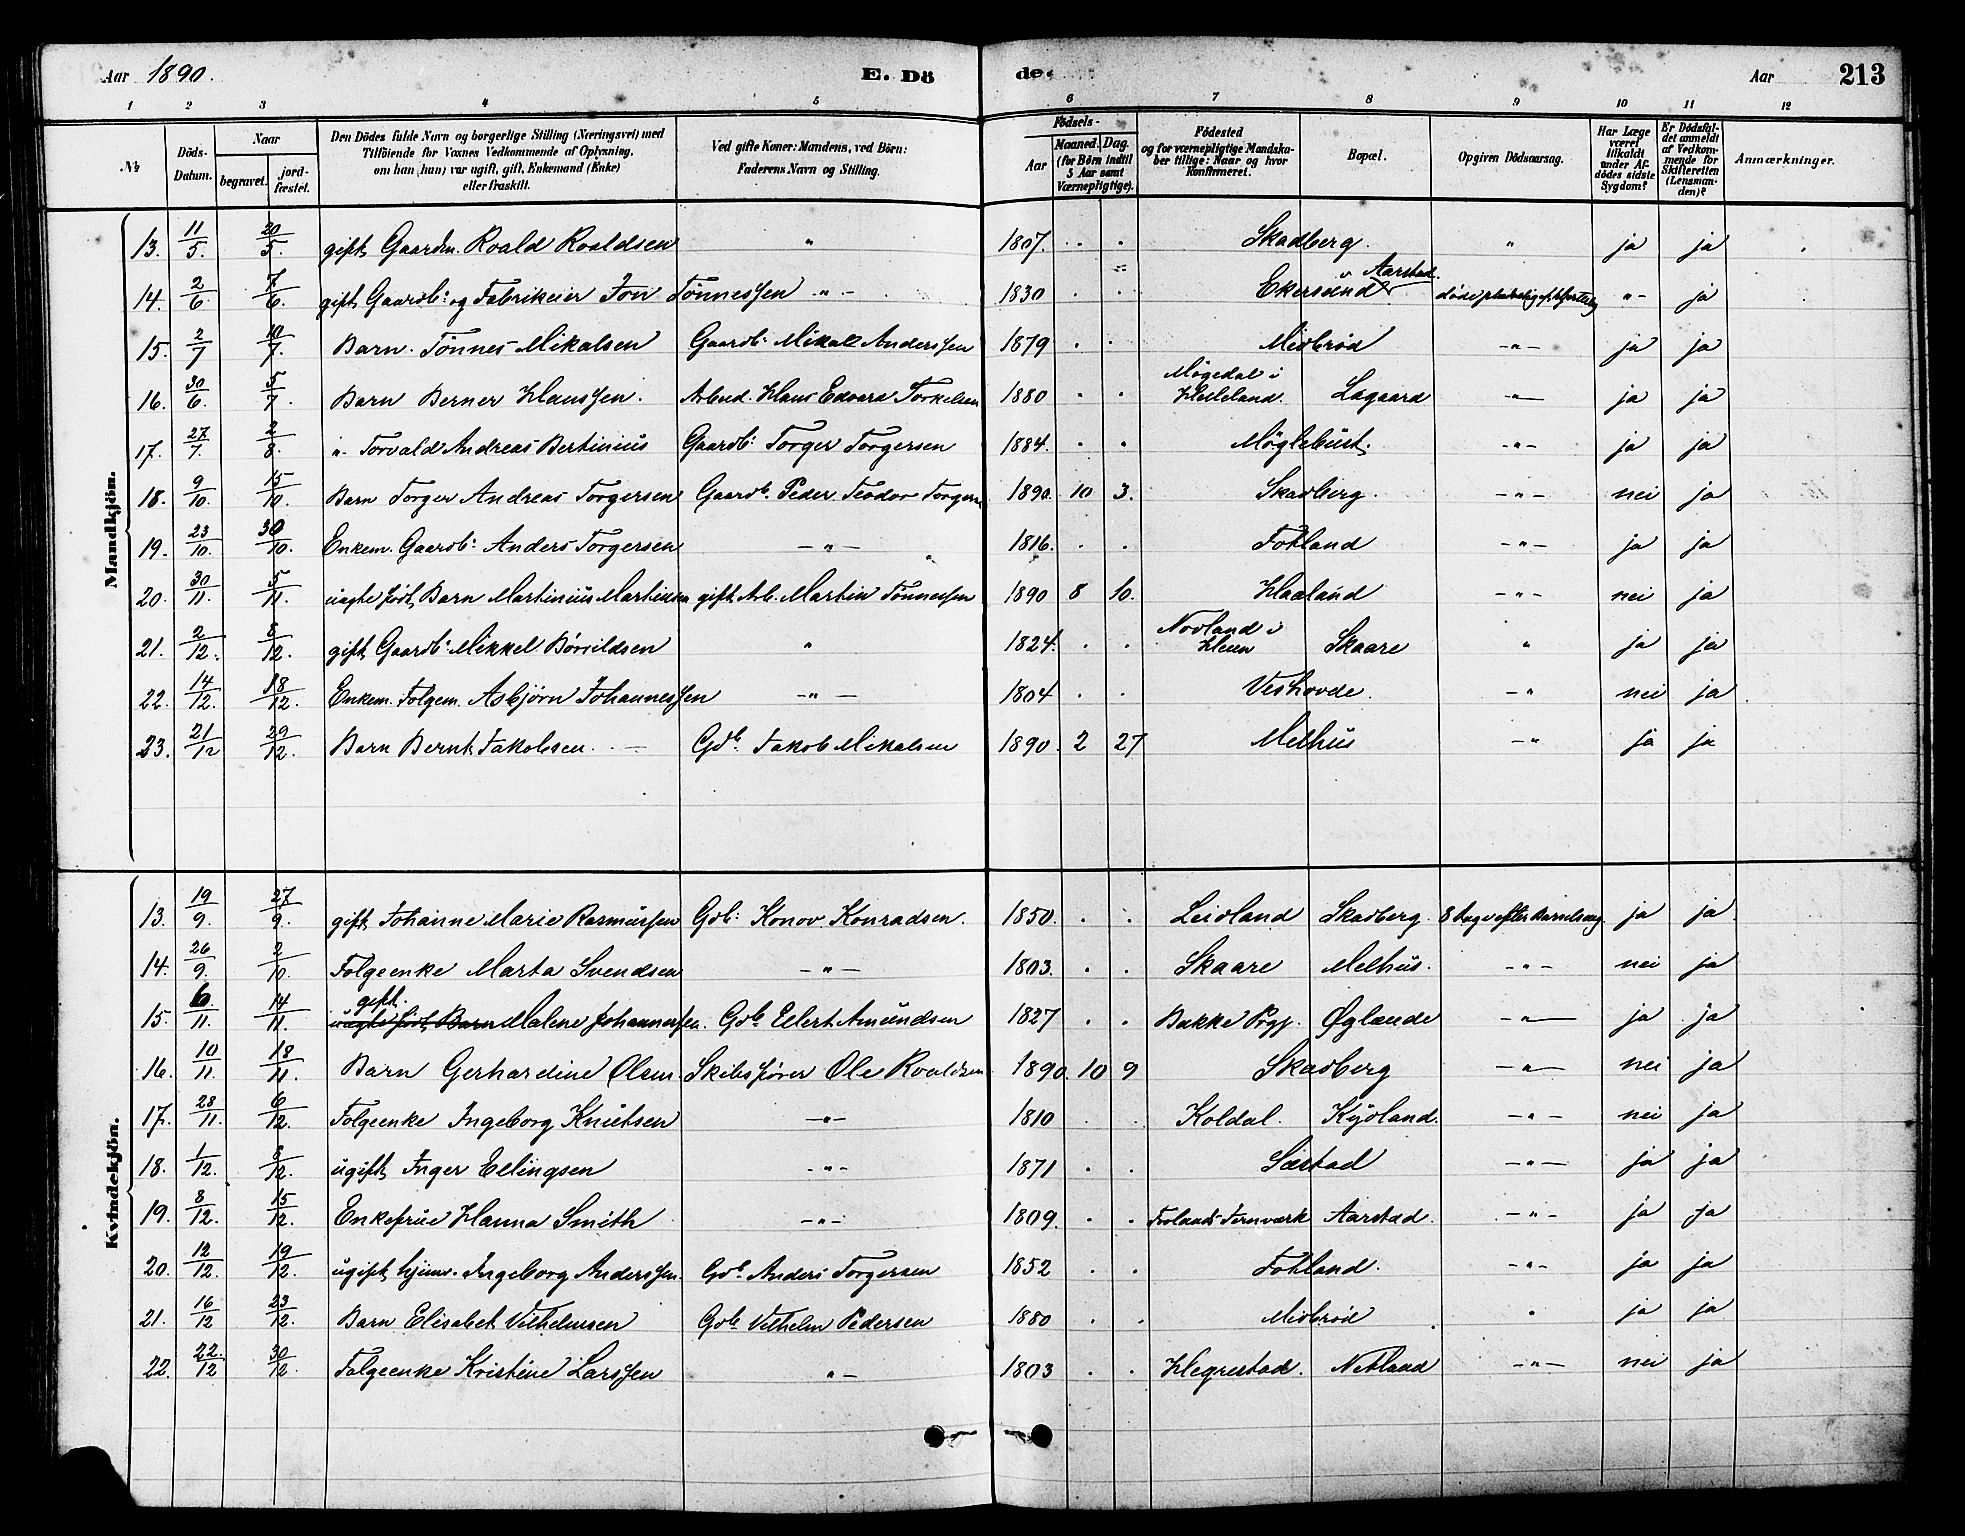 Aar 1890. E. Döde. Aar 213
1 2 3 4 5 6 7 8 9 10 11 12
No Döds-Datum. Naar begravet. jordfæstet. Den Dödes fulde Navn og borgerlige Stilling (Næringsvei) med Tilföiende for Voxnes Vedkommende af Oplysning, om han (hun) var ugift, gift, Enkemand (Enke) eller fraskilt. Ved gifte Koner: Mandens, ved Börn: Faderens Navn og Stilling. Födsels- Aar Maaned. Dag. (for Börn indtil 5 Aar samt Værnepligtige). Födested og for værnepligtige Mandskaber tillige: Naar og hvor Konfirmeret. Bopæl. Opgiven Dödsaarsag. Har Læge været tilkaldt under Afdödes sidste Sygdom? Er Dödsfaldet anmeldt af Vedkommende for Skifteretten (Lensmanden)? Anmærkninger.
Mandkjöm.
13. 11/5. 20/5. gift Gaardm. Roald Roaldsen " 1807. . . Skadberg. " ja ja
14. 2/6. 7/6. gift Gaardb: og Fabrikeier Jon Tönnessen " - 1830 . . Ekersund v Aarstad. döde " - ja
15. 2/7 10/7. Barn. Tönnes Mikalsen Gaardb: Mikall Anderssen 1879 . . Midbröd - " - ja ja
16. 30/6. 5/7 Barn Berner Hanssen. Arbeid. Hans Edvard Torkelsen 1880 . . Mögedal i Helleland. Lagaard - " - ja ja
17. 27/7. 2/8. " Torvald Andreas Bertinius Gaardb: Torger Torgersen 1884. . . Möglebust. - " - ja ja
18. 9/10 15/10. Barn Torger Andreas Torgersen Gaardb. Peder Teodor Torgers 1890. 10 3. Skadberg. - " - nei ja
19. 23/10. 30/10. Enkem. Gaardb: Anders Torgersen - " - 1816. . . Fotland - " - ja ja
20. 30/11. 5/11. uægte född Barn Martinius Martinsen gift Arb. Martin Tönnessen 1890 8 10. Haaland - " - nei ja
21. 2/12. 8/12. gift Gaardb: Mikkel Börildsen " 1824. . . Novland i Heien Skaare " ja ja
22. 14/12. 18/12. Enkem. Folgem. Asbjörn Johannessen - " - 1804 . . Veshovde. - " nei ja
23. 21/12 29/12. Barn Bernt Jakobsen. - Gdb. Jakob Mikalsen 1890. 2 27 Melhus - " ja ja
Kvindekjön.
13. 19/9. 27/9. gift Johanne Marie Rasmussen Gdb: Konov Konradsen. 1850. . . Leidland Skadberg. 8 Dage efter Barselseng. ja ja
14. 26/9. 2/10. Folgeenke Marta Svendsen - " - 1803. . . Skaare Melhus. - " - nei ja
gift.
15. 6/11. 14/11. uægte född Barn Malene Johannessen. Gdb. Ellert Amundsen 1827 . . Bakke Prgj. Øglænde - " - ja ja
16. 10/11. 18/11. Barn Gerhardine Olsen Skibsförer Ole Roaldsen 1890. 10 9 Skadberg - " - nei ja
17. 28/11. 6/12. Folgeenke Ingeborg Knutsen - " - 1810 . . Koldal. Kydland. - " - nei ja
18. 1/12. 8/12. ugift Inger Ellingsen - " - 1871 . . Sæstad - " - ja ja
19. 8/12. 15/12. Enkefrue Hanna Smith - " - 1809. . . Frolands Jernværk Aarstad. - " - ja ja
20. 12/12. 19/12. ugift hjem. Ingeborg Anderssen. Gdb. Anders Torgersen 1852 . . Fotland. - " - ja ja
21. 16/12 23/12. Barn Elisabet Vilhelmsen Gdb. Vilhelm Pedersen 1880 . . Midbröd " ja ja
22. 22./12 30/12. Folgeenke Kristine Larssen " - 1803 . . Hegrestad. Netland - " - nei ja